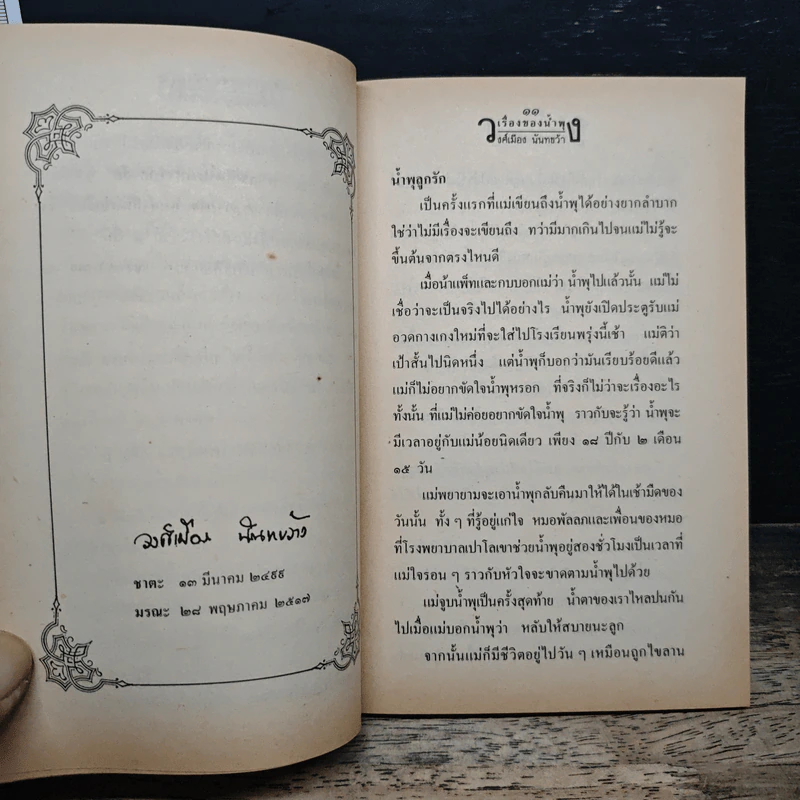 วงศ์เมือง นันทขว้าง
ชาตะ ๑๓ มีนาคม ๒๔๙๙
มรณะ ๒๘ พฤษภาคม ๒๕๑๗
๑๑
เรื่องของน้ำพุ
วงศ์เมือง นันทขว้าง
น้ำพุลูกรัก
เป็นครั้งแรกที่แม่เขียนถึงน้ำพุได้อย่างยากลำบาก
ใช่ว่าไม่มีเรื่องจะเขียนถึง ทว่ามีมากเกินไปจนแม่ไม่รู้จะ
ขึ้นต้นจากตรงไหนดี
เมื่อน้าแพ็ทและกบบอกแม่ว่า น้ำพุไปแล้วนั้น แม่ไม่
เชื่อว่าจะเป็นจริงไปได้อย่างไร น้ำพุยังเปิดประตูรับแม่
อวดกางเกงใหม่ที่จะใส่ไปโรงเรียนพรุ่งนี้เช้า แม่ติว่า
เป้าสั้นไปนิดหนึ่ง แต่น้ำพุก็บอกว่ามันเรียบร้อยดีแล้ว
แม่ก็ไม่อยากขัดใจน้ำพุหรอก ที่จริงก็ไม่ว่าจะเรื่องอะไร
ทั้งนั้น ที่แม่ไม่ค่อยอยากขัดใจน้ำพุ ราวกับจะรู้ว่า น้ำพุจะ
มีเวลาอยู่กับแม่น้อยนิดเดียว เพียง ๑๘ ปีกับ ๒ เดือน
๑๕ วัน
แม่พยายามจะเอาน้ำพุกลับคืนมาให้ได้ในเช้ามืดของ
วันนั้น ทั้ง ๆ ที่รู้อยู่แก่ใจ หมอพัลลภและเพื่อนของหมอ
ที่โรงพยาบาลเปาโลเขาช่วยน้ำพุอยู่สองชั่วโมงเป็นเวลาที่
แม่ใจรอน ๆ ราวกับหัวใจจะขาดตามน้ำพุไปด้วย
แม่จูบน้ำพุเป็นครั้งสุดท้าย น้ำตาของเราไหลปนกัน
ไปเมื่อแม่บอกน้ำพุว่า หลับให้สบายนะลูก
จากนั้นแม่ก็มีชีวิตอยู่ไปวัน ๆ เหมือนถูกไขลาน